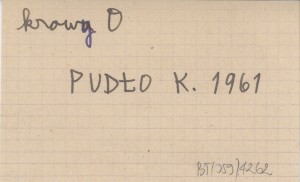 krowy O
PUDŁO K. 1961
BT/259/42/62